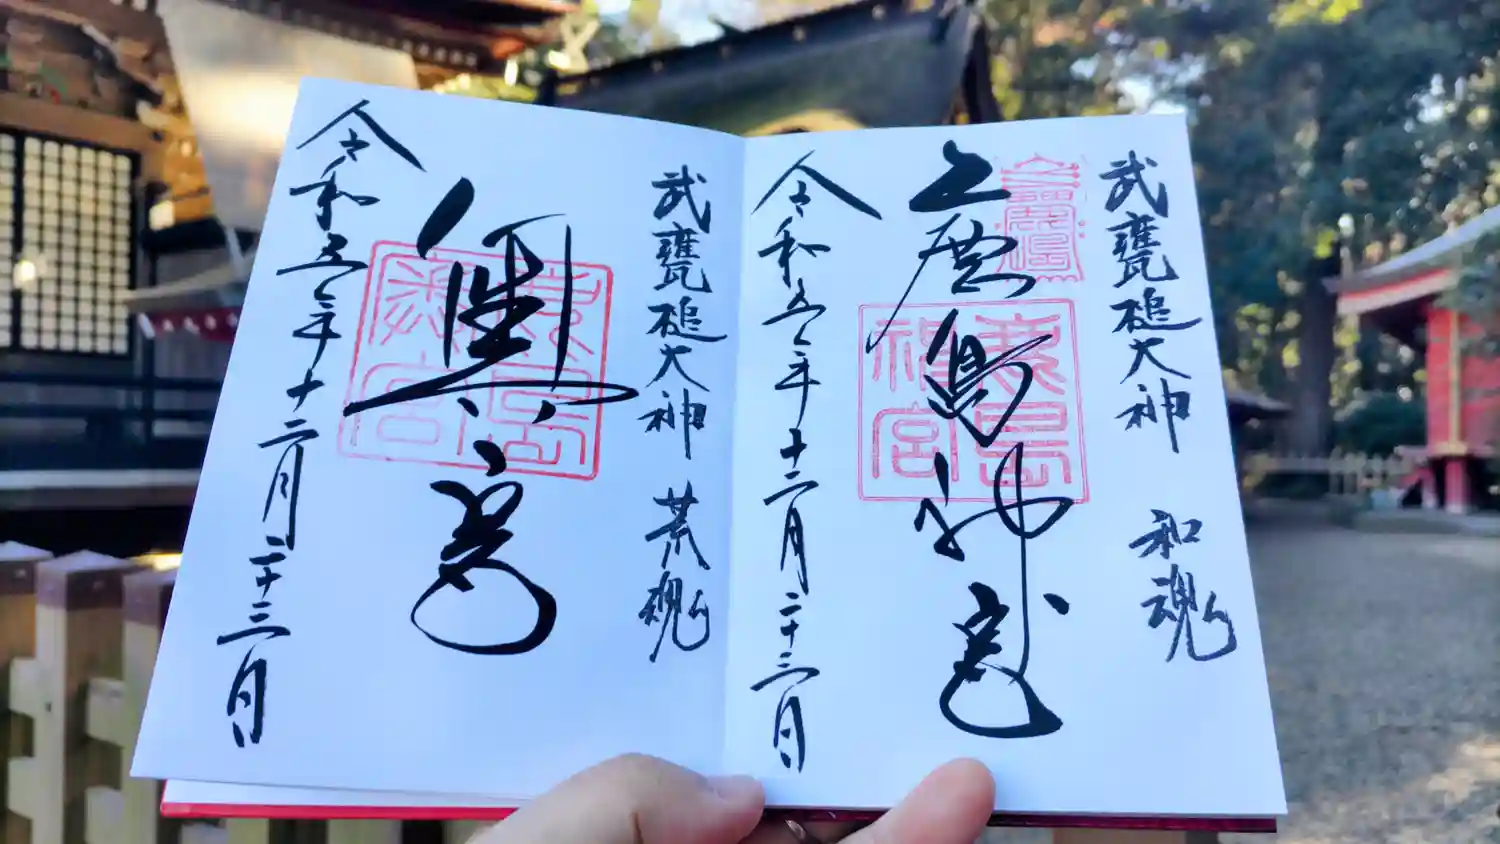 武甕槌大神 和魂
鹿島神宮
鹿島神宮
令和五年十二月二十三日
武甕槌大神 荒魂
奥宮
鹿島神宮
令和五年十二月二十三日